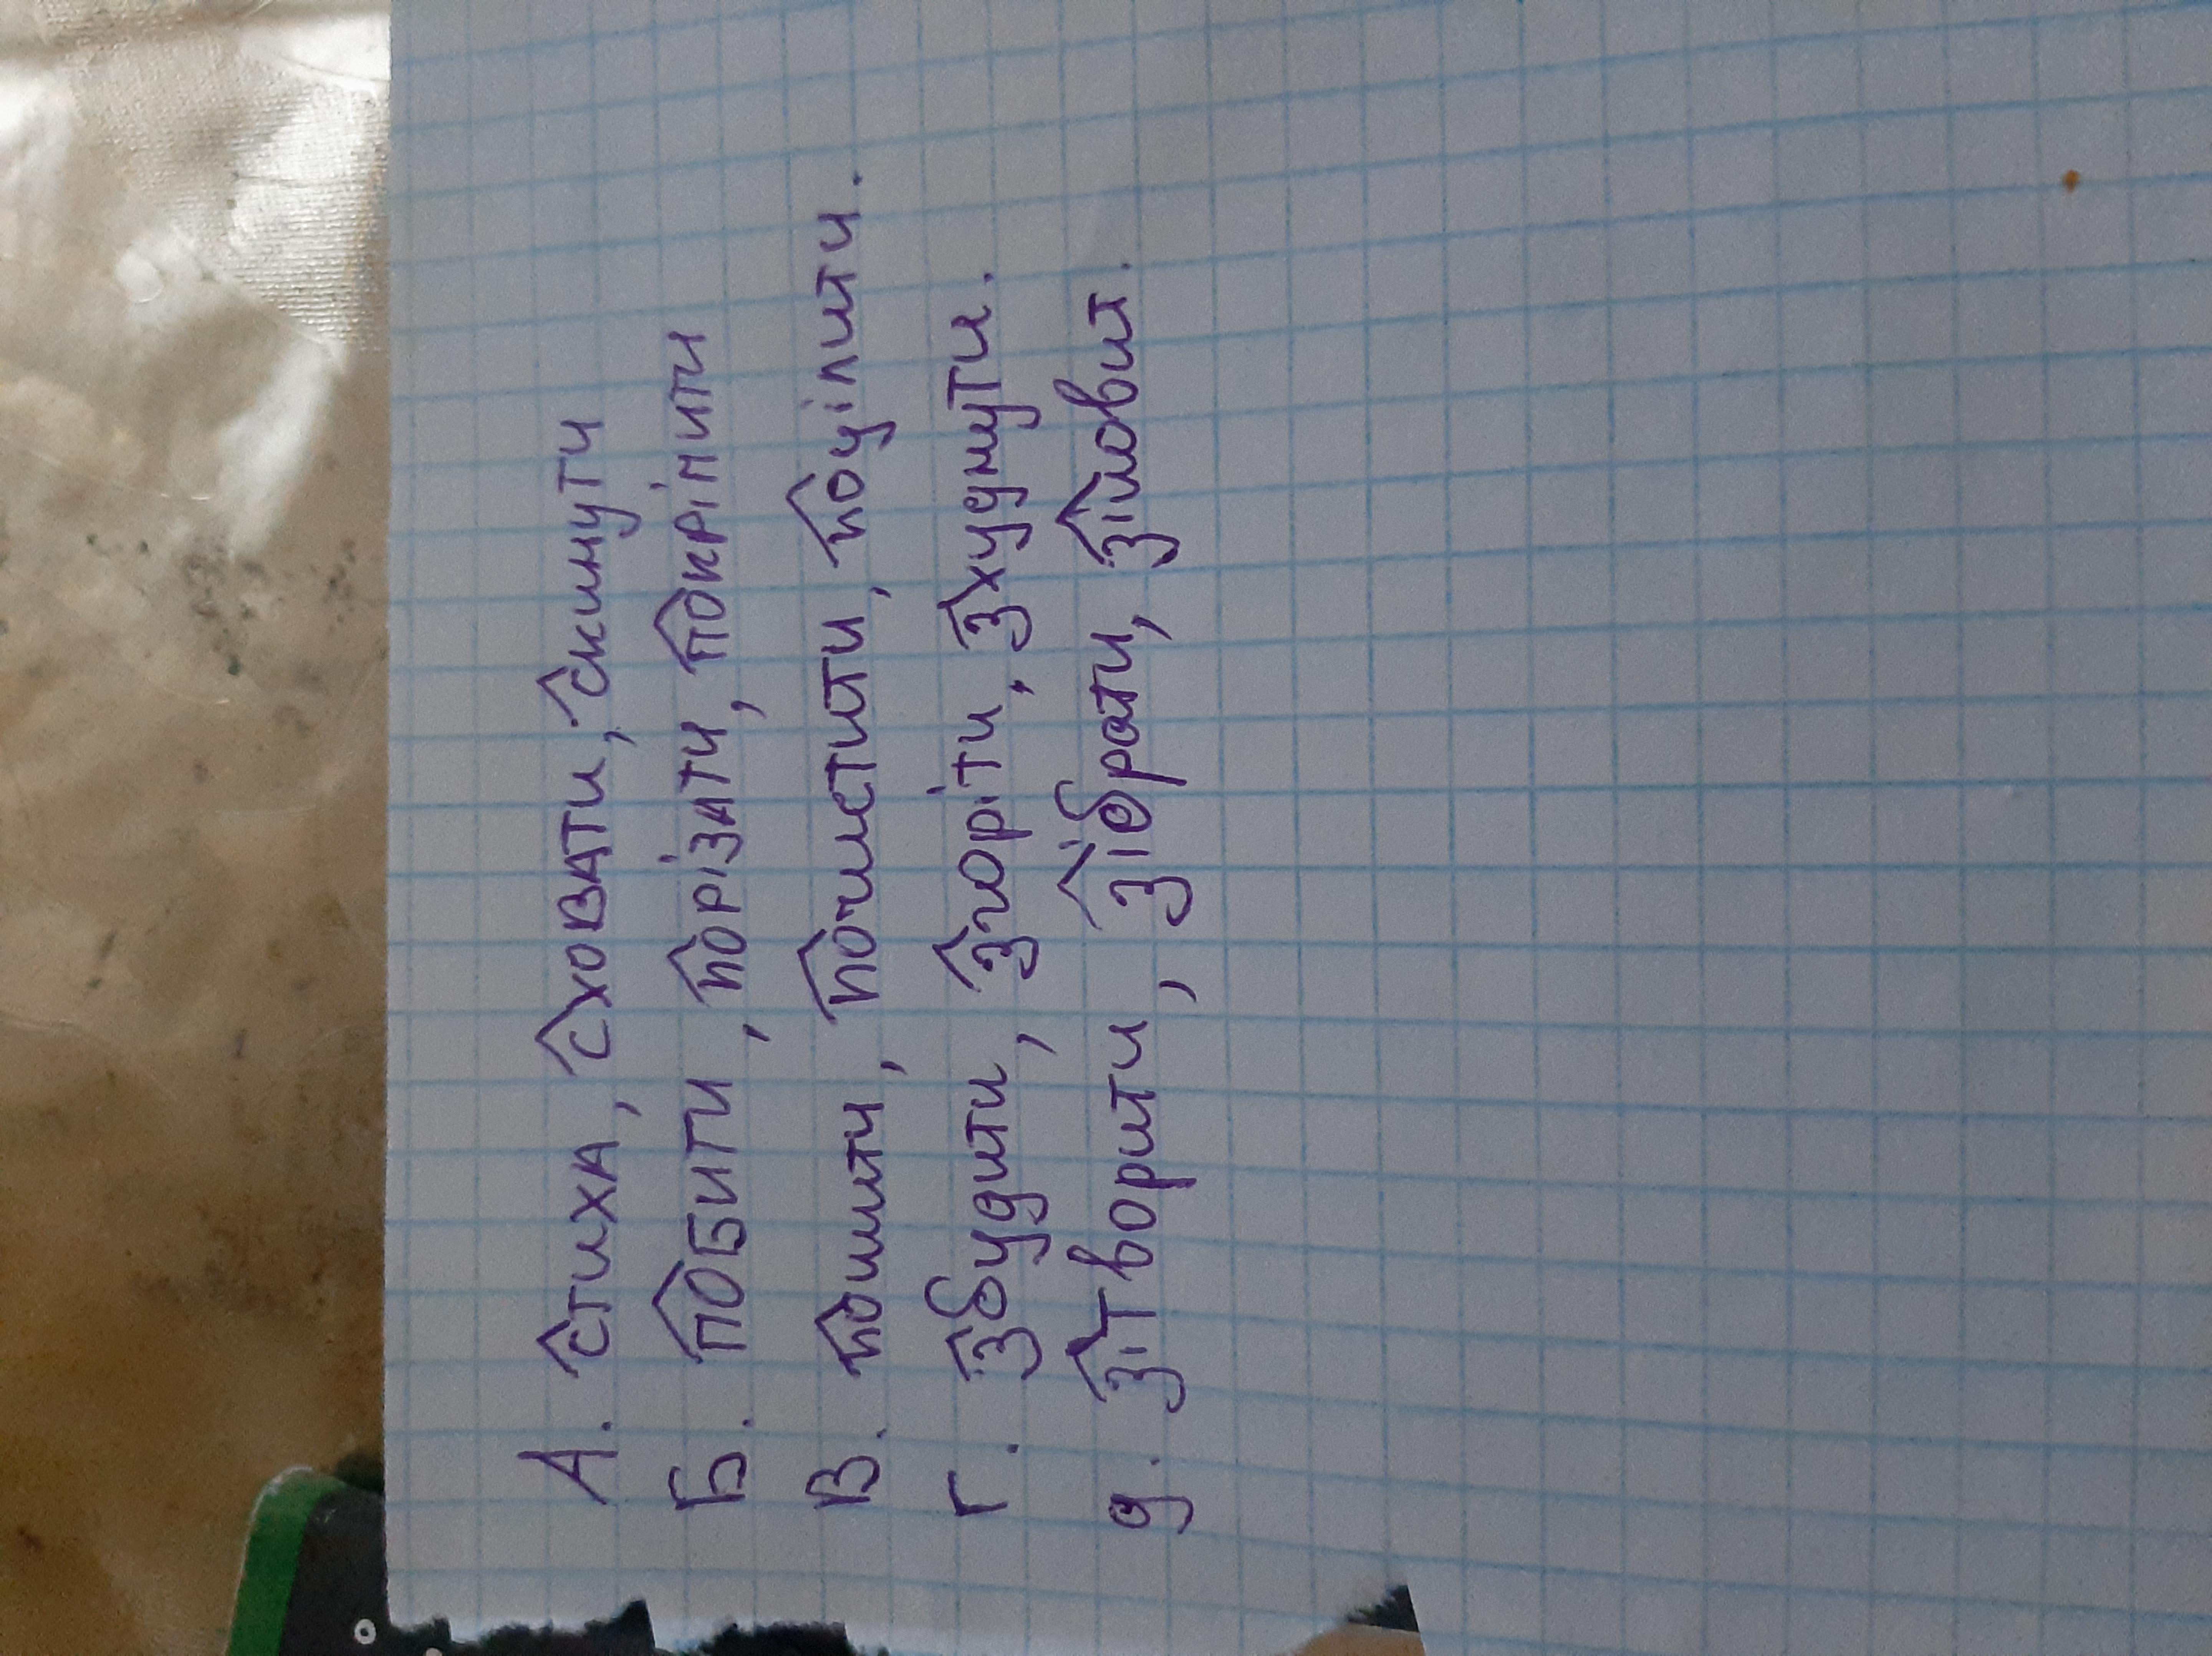 А. стиха, сховати, скинути
Б. побити, порізати, покрімити
В. пошити, почистити, поцілити.
Г. збудити, згоріти, зхуднути.
д. зітворити, зібрати, зіловит.